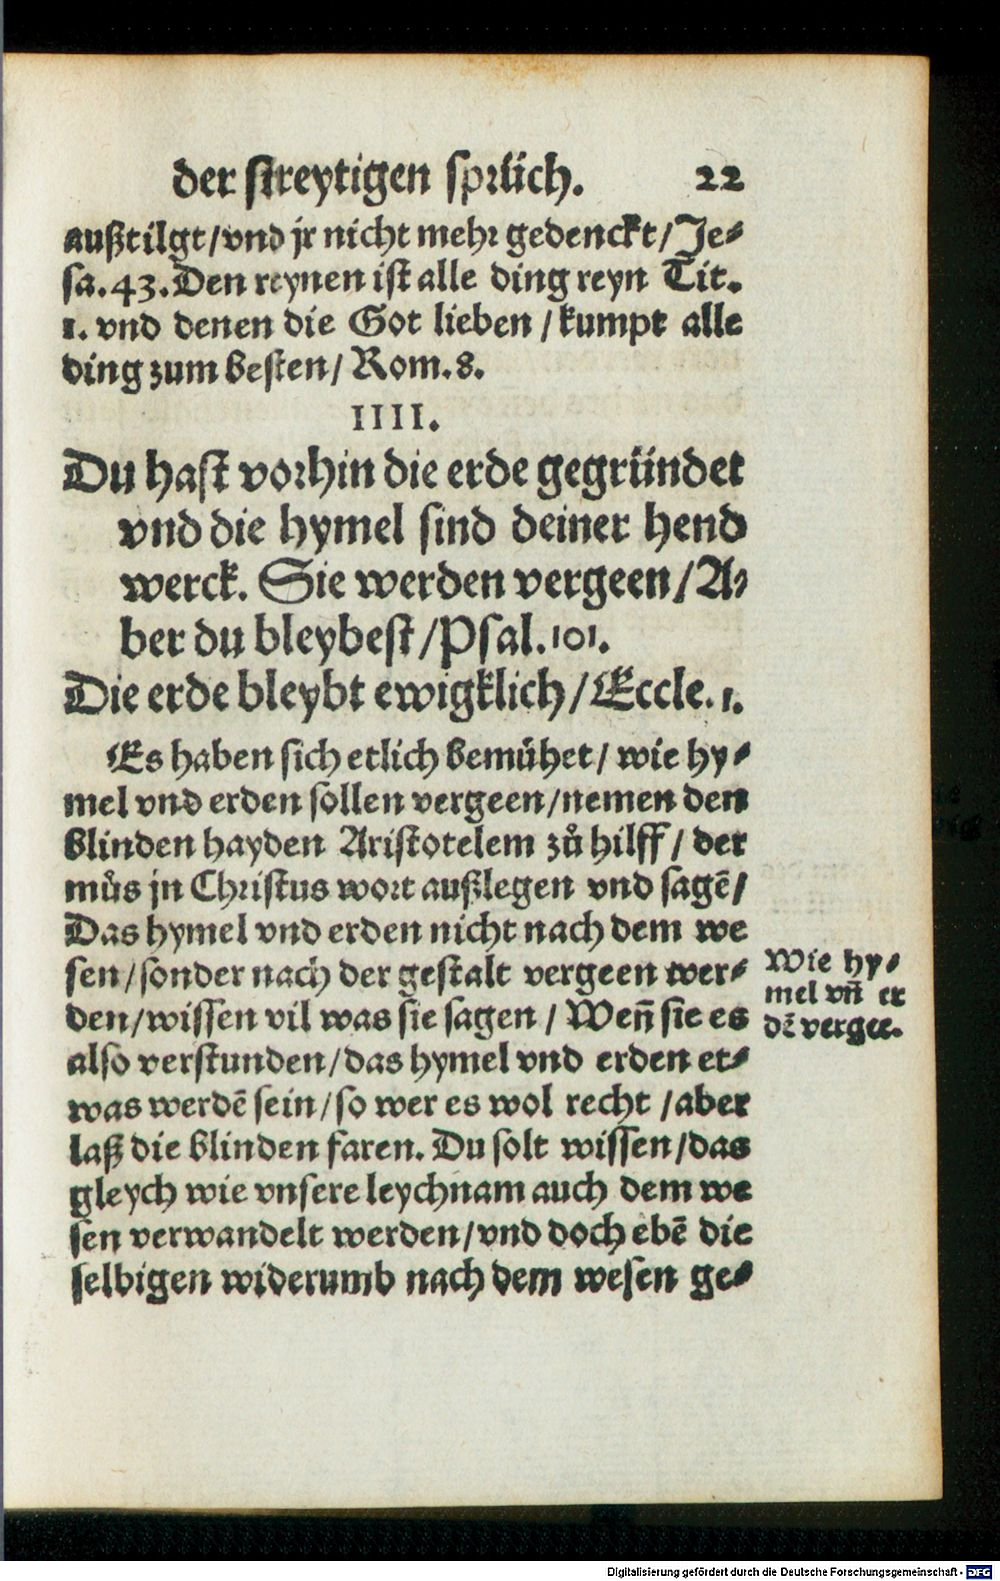 der streytigen sprüch. 22
außtilgt/vnd jr nicht mehr gedenckt/Je⸗
sa.43.Den reynen ist alle ding reyn Tit.
1. vnd denen die Got lieben/kumpt alle
ding zum besten/Rom.8.
IIII.
Du hast vorhin die erde gegründet
vnd die hymel sind deiner hend
werck. Sie werden vergeen/A⸗
ber du bleybest/Psal.101.
Die erde bleybt ewigklich/Eccle.1.
Es haben sich etlich bemühet/wie hy⸗
mel vnd erden sollen vergeen/nemen den
blinden hayden Aristotelem zů hilff/der
můs jn Christus wort außlegen vnd sagē/
Das hymel vnd erden nicht nach dem we
sen/sonder nach der gestalt vergeen wer⸗
den/wissen vil was sie sagen/Weñ sie es
also verstunden/das hymel vnd erden et⸗
was werdē sein/so wer es wol recht/aber
laß die blinden faren. Du solt wissen/das
gleych wie vnsere leychnam auch dem we
sen verwandelt werden/vnd doch ebē die
selbigen widerumb nach dem wesen ge⸗
Wie hy⸗
mel vñ er
dē vergee.
Digitalisierung gefördert durch die Deutsche Forschungsgemeinschaft - DFG